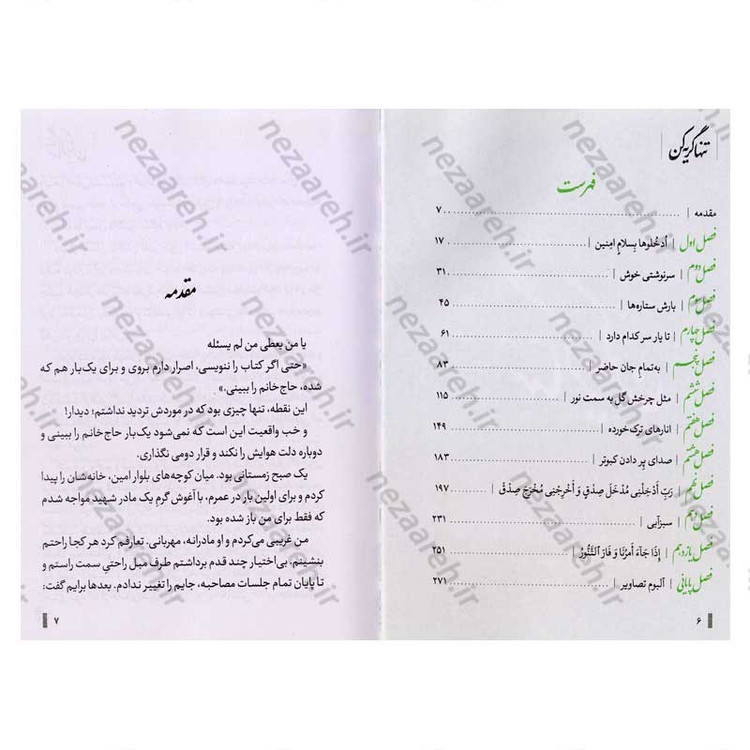 تنها گریه کن
فهرست
مقدمه | ۷
فصل اول | اُدخُلوها بِسلامٍ امِنین | ۱۷
فصل دوم | سرنوشتی خوش | ۳۱
فصل سوم | بارش ستاره‌ها | ۴۵
فصل چهارم | تا یار سر کدام دارد | ۶۱
فصل پنجم | به‌تمامِ جان حاضر | ۸۳
فصل ششم | مثل چرخش گل به سمت نور | ۱۱۵
فصل هفتم | انارهای ترک‌خورده | ۱۴۹
فصل هشتم | صدای پر دادن کبوتر | ۱۸۳
فصل نهم | رَبِّ أَدخِلنِی مُدخَلَ صِدقٍ وَ أَخرِجنِی مُخرَجَ صِدقٍ | ۱۹۷
فصل دهم | سبزآبی | ۲۳۱
فصل یازدهم | إِذَا جَآءَ أَمرُنَا وَ فَارَ ٱلتَّنُّورُ | ۲۵۱
فصل پایانی | آلبوم تصاویر | ۲۷۱
۶
مقدمه
یا من یعطی من لم یسئله
«حتی اگر کتاب را ننویسی، اصرار دارم بروی و برای یک‌بار هم که
شده، حاج‌خانم را ببینی.»
این نقطه، تنها چیزی بود که در موردش تردید نداشتم؛ دیدار!
و خب واقعیت این است که نمی‌شود یک‌بار حاج‌خانم را ببینی و
دوباره دلت هوایش را نکند و قرار دومی نگذاری.
یک صبح زمستانی بود. میان کوچه‌های بلوار امین، خانه‌شان را پیدا
کردم و برای اولین بار در عمرم، با آغوش گرمِ یک مادر شهید مواجه شدم
که فقط برای من باز شده بود.
من غریبی می‌کردم و او مادرانه، مهربانی. تعارفم کرد هر کجا راحتم
بنشینم. بی‌اختیار چند قدم برداشتم طرف مبل راحتیِ سمت راستم و
تا پایان تمام جلسات مصاحبه، جایم را تغییر ندادم. بعدها برایم گفت:
۷
nezaareh.ir